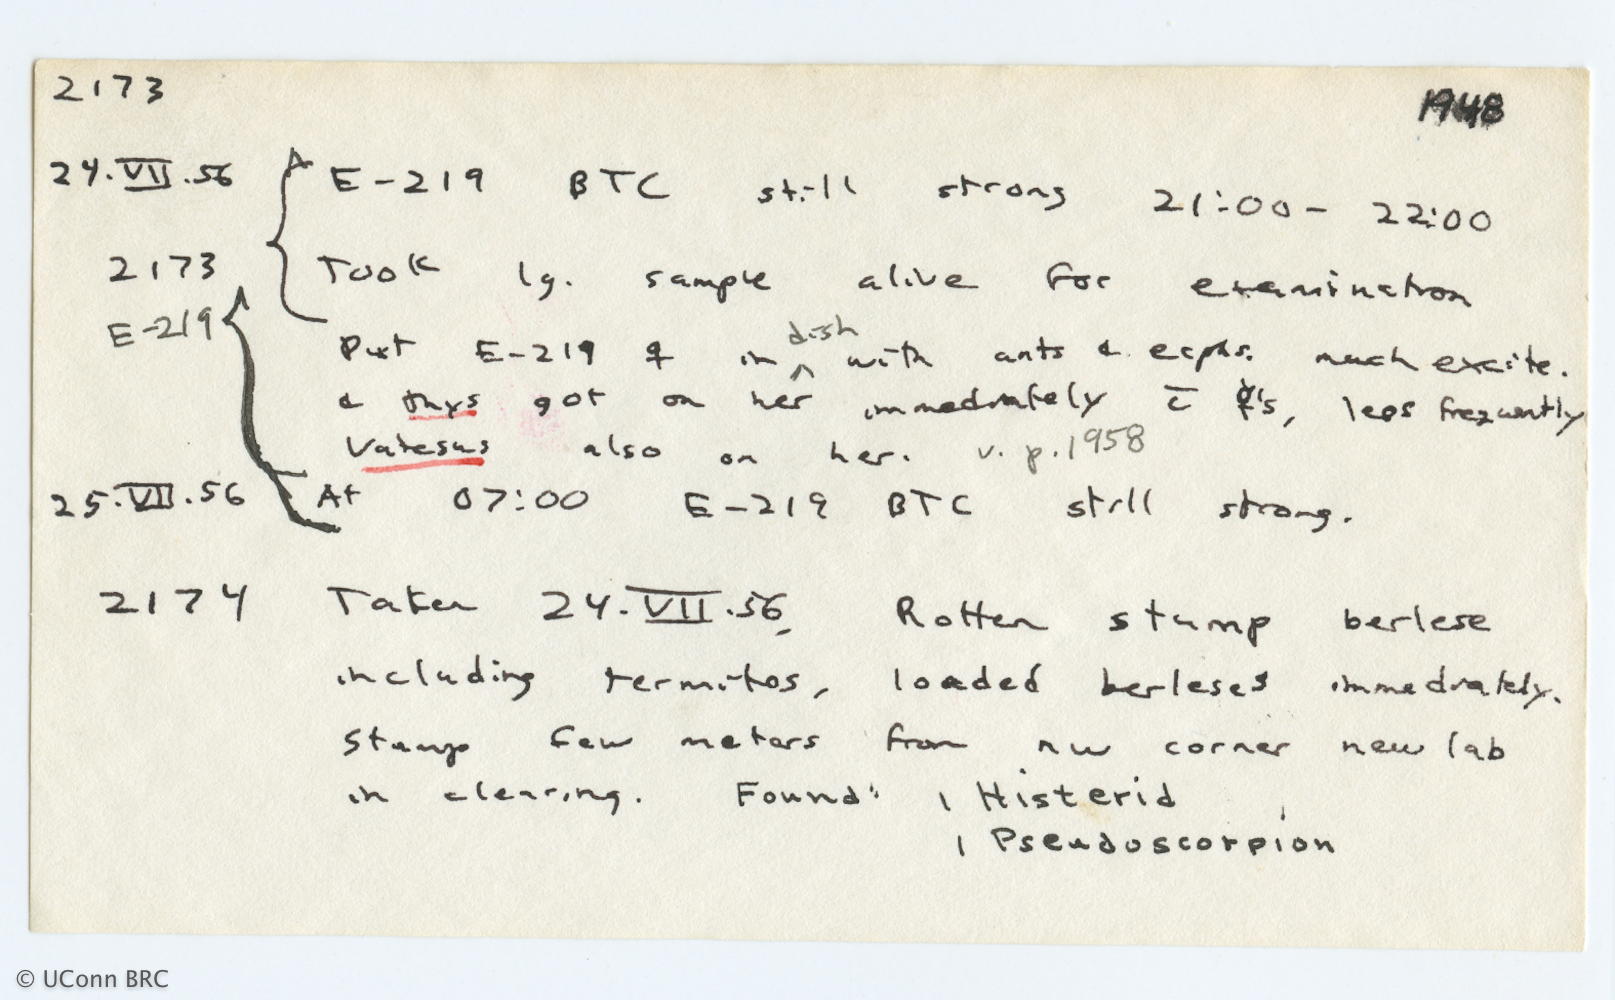 2173
1948
24.VII.56 E-219 BTC still strong 21:00 - 22:00
2173 Took lg. sample alive for examination
E-219
Put E-219 ♀ in dish with ants & ecphs. much excite.
& thys got on her immediately c̄ ☿'s, less frequently
Vatesus also on her. v. p. 1958
25.VII.56 At 07:00 E-219 BTC still strong.
2174 Taken 24.VII.56, Rotten stump berlese
including termites, loaded berleses immediately.
Stump few meters from nw corner new lab
in clearing. Found: 1 Histerid
1 Pseudoscorpion
© UConn BRC